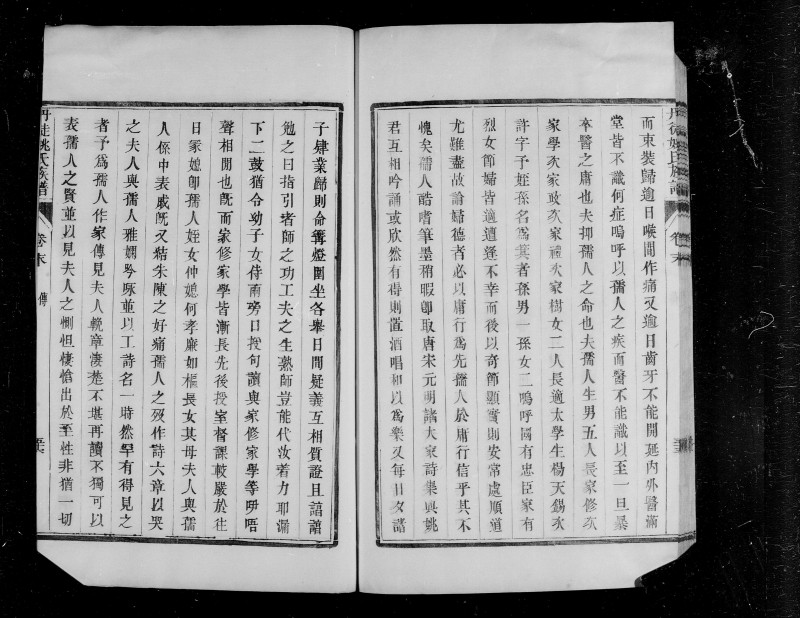 而束裝歸逾日喉間作痛又逾日齒牙不能開延內外醫滿
堂皆不識何症嗚呼以孺人之疾而醫不能識以至一旦暴
卒醫之庸也夫抑孺人之命也夫孺人生男五人長家修次
家學次家敢次家禮次家樹女二人長適太學生楊天錫次
許字予姪孫名爲箕者孫男一孫女二嗚呼國有忠臣家有
烈女節婦皆適遭逢不幸而後以奇節顯實則安常處順道
尤難盡故論婦德者必以庸行爲先孺人於庸行信乎其不
愧矣孺人酷嗜筆墨稍暇卽取唐宋元明諸大家詩集與姚
君互相吟誦或欣然有得則置酒唱和以爲樂又每日夕諸
子肄業歸則命篝燈圍坐各舉日間疑義互相質證且諳諳
勉之曰指引者師之功工夫之生熟師豈能代汝着力耶漏
下二鼓猶令幼子女侍兩旁口授句讀與家修家學等咿唔
聲相聞也旣而家修家學皆漸長先後授室督課較嚴於往
日家媳卽孺人姪女仲媳何孝廉如樞長女其母夫人與孺
人係中表戚旣又結朱陳之好痛孺人之歿作詩六章以哭
之夫人與孺人雅嫺吟咏並以工詩名一時然罕有得見之
者予爲孺人作家傳見夫人輓章淒楚不堪再讀不獨可以
表孺人之賢並以見夫人之惻怛悽愴出於至性非猶一切
丹徒姚氏族譜
卷末
傳